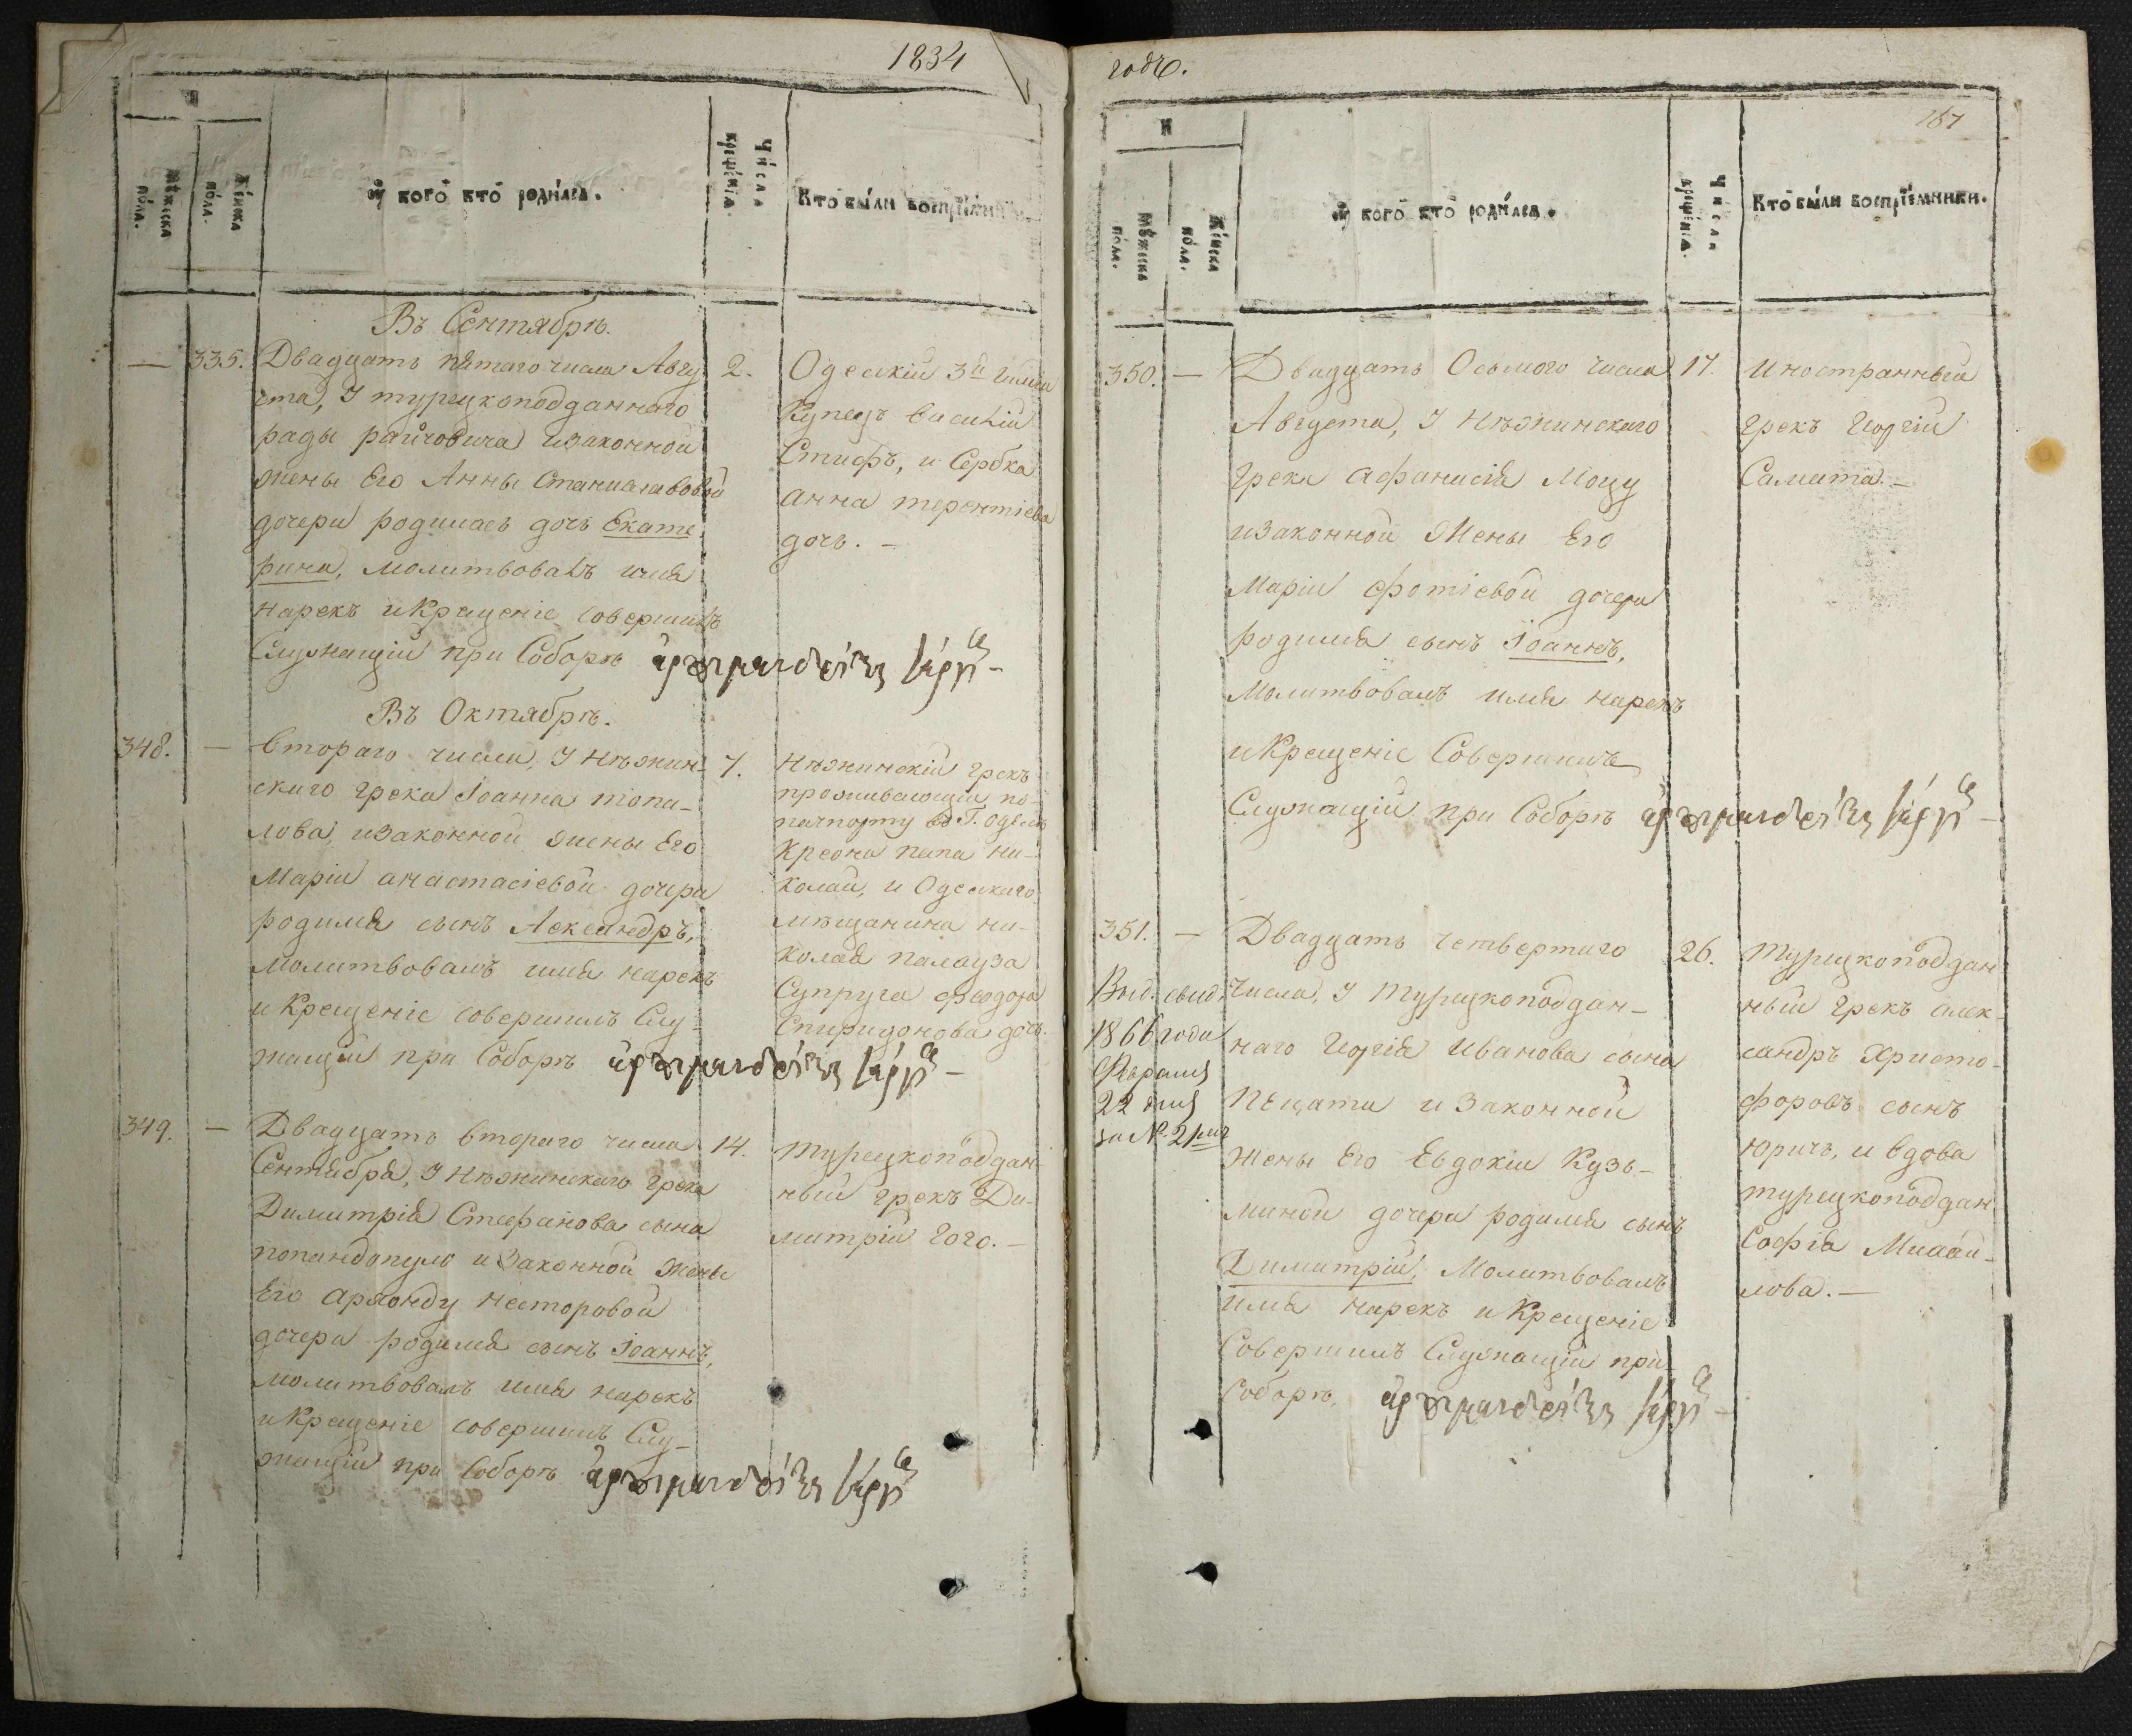 1834
И
Мꙋжеска пола.
Женска пола.
Ꙋ кого кто родился.
Числа крещенїя.
Кто были воспрїемники.
Въ Сентябрѣ.
— 335.
Двадцать пятаго числа Авгу
ста, У турецкоподданнаго
рады райчовича изаконной
жены Его Анны Станиславовой
дочери родилась дочь Екате
рина, молитвовалъ имя
нарекъ иКрещеніе совершилъ
Служащій при Соборѣ
2.
Одесскій 3й гильдіи
Купецъ василій
Стифъ, и Сербка
анна терентіева
дочь. —
Въ Октябрѣ.
348. —
втораго числа, У Нѣжин-
скаго грека Іоанна топа-
лова, изаконной жены Его
Маріи анастасіевой дочери
родился сынъ Александръ,
молитвовалъ имя нарекъ
и Крещеніе совершилъ Слу-
жащій при Соборѣ
7.
Нѣжинскій грекъ
проживающій по
пачпорту въ Г. Одессѣ
папа Ни-
колай, и Одесскаго
мѣщанина ни-
колая палауза
Супруга Феодора
Спиридонова дочь.
349. —
Двадцать втораго числа
Сентября, У Нѣжинскаго грека
Димитрія Стефанова сына
попандопуло и законной Жены
Его Несторовой
дочери родился сынъ Іоаннъ,
молитвовалъ имя нарекъ
иКрещеніе совершилъ Слу-
жащій при Соборѣ
14.
турецкоподдан-
ный грекъ Ди-
митрій Гого. —
годъ.
187
И
Мꙋжеска пола.
Женска пола.
Ꙋ кого кто родился.
Числа крещенїя.
Кто были воспрїемники.
350. —
Двадцать Осьмого числа
Августа, У Нѣжинскаго
грека Афанасія Моцу
изаконной Жены Его
Маріи Фотіевой дочери
родился сынъ Іоаннъ,
Молитвовалъ имя нарекъ
иКрещеніе Совершилъ
Служащій при Соборѣ
17.
Иностранный
грекъ Георгій
Самата. —
351. —
Двадцать четвертаго
числа, У турецкоподдан-
наго Георгія Иванова сына
Пецати и законной
жены Его Евдокіи Кузь-
миной дочери родился сынъ
Димитрій, Молитвовалъ
имя нарекъ и Крещеніе
Совершилъ Служащій при
Соборѣ,
Выд. свид.
1866 года
Февраля
22 дня
за №. 21
26.
Турецкоподдан
ный грекъ алек-
сандръ Христо-
форовъ сынъ
Юричъ, и вдова
турецкоподдан
Софія Михай-
лова. —